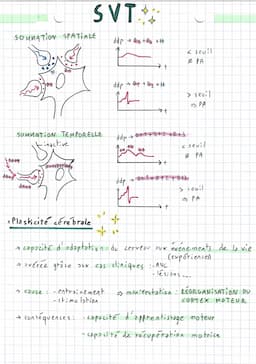 SVT
SOMMATION SPATIALE
ddp
< seuil
≠ PA
t
ddp
> seuil
⇒ PA
t
SOMMATION TEMPORELLE
inactive
ddp
< seuil
≠ PA
t
ddp
> seuil
⇒ PA
t
• Plasticité cérébrale
→ capacité d'adaptation du cerveau aux événements de la vie
(expériences)
→ avérée grâce aux cas cliniques : - AVC
- lésions...
→ cause : - entraînement ⇒ manifestation : RÉORGANISATION DU
- stimulation CORTEX MOTEUR
→ conséquences : - capacité d'apprentissage moteur
- capacité de récupération motrice